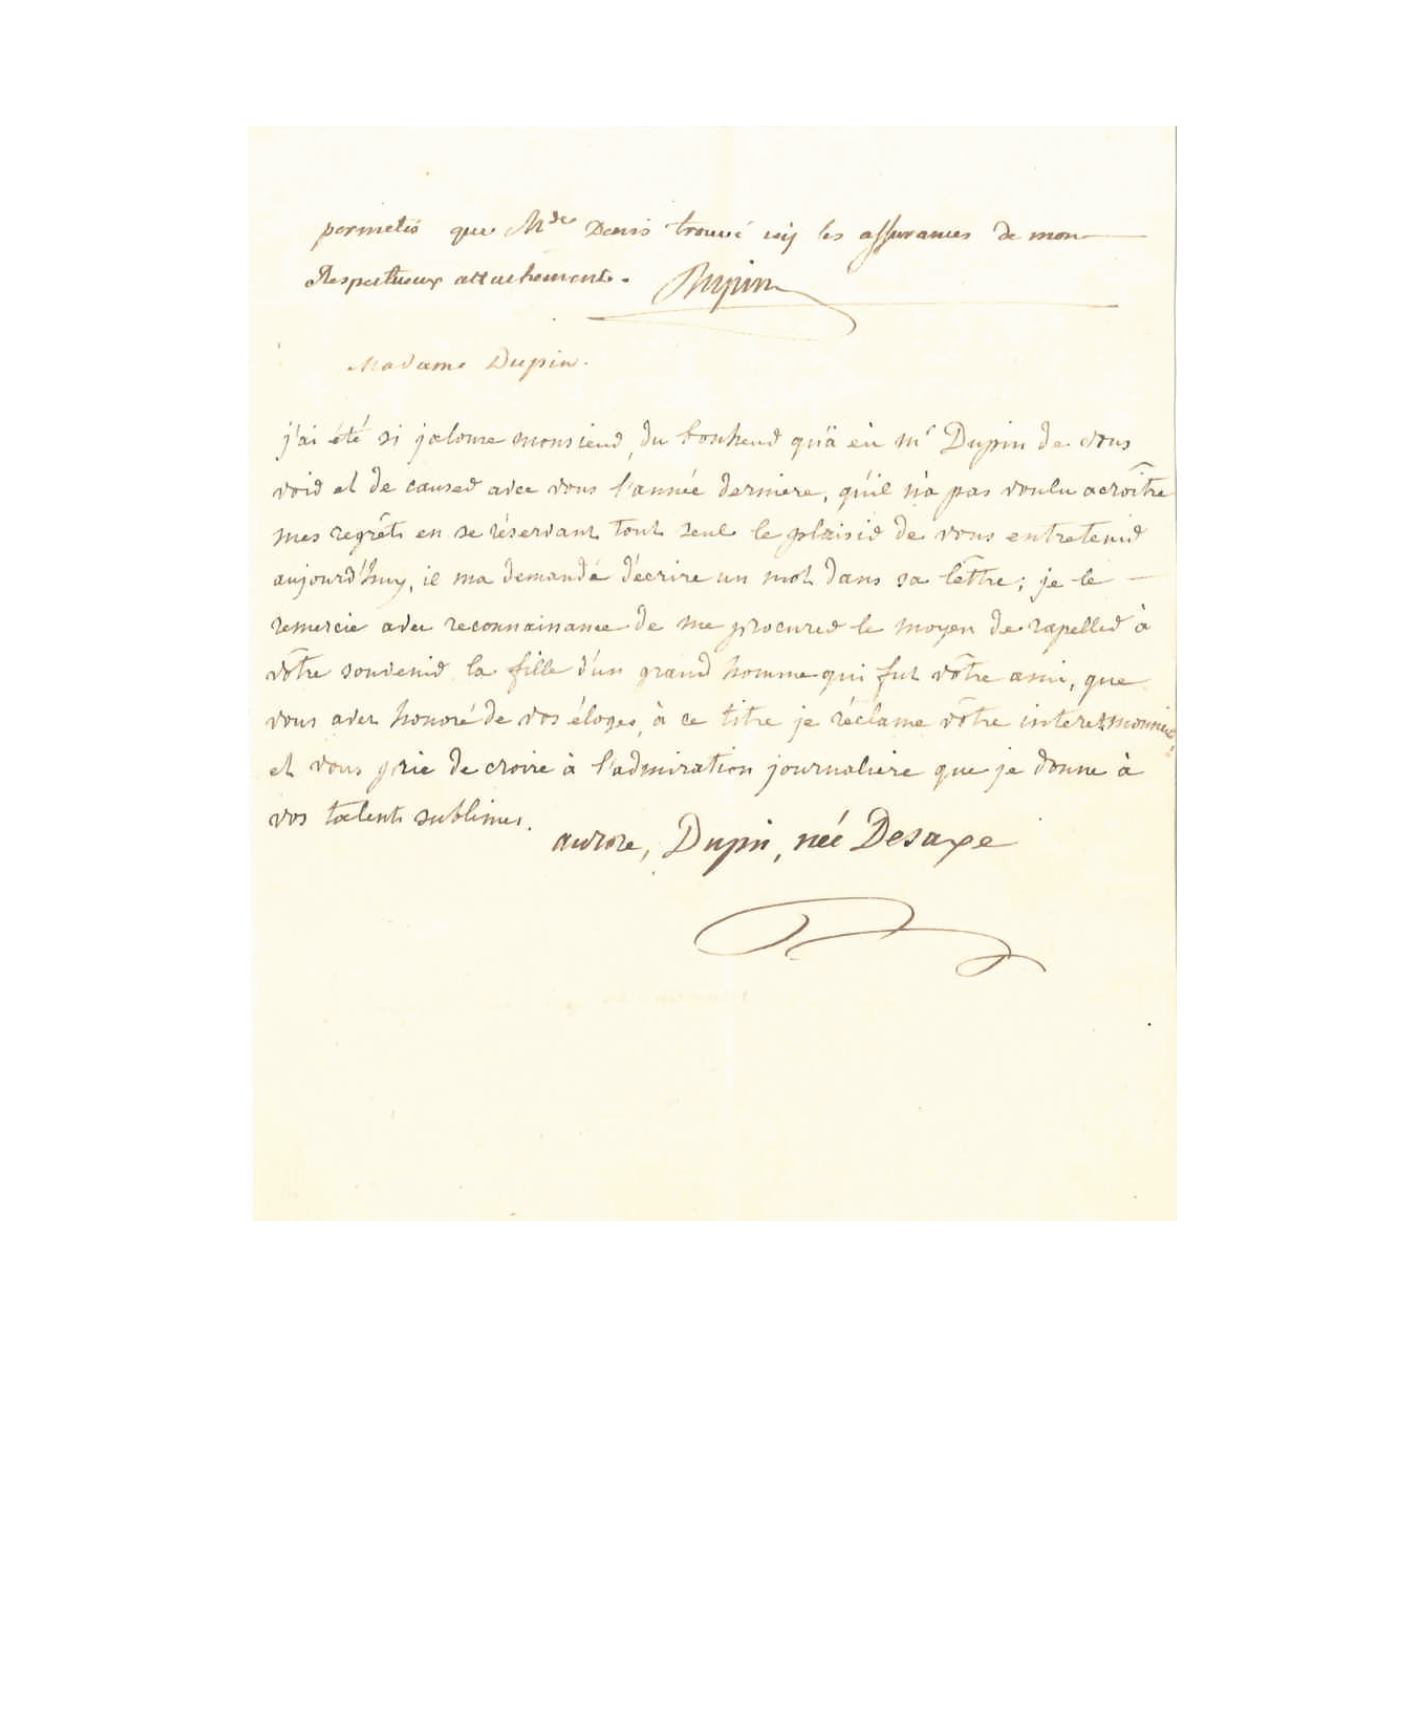 permetés que Mde Denis trouve icy les assurances de mon
Respectueux attachement. Dupin
Madame Dupin.
j'ai été si jalouse monsieur, du bonheur qu'a eù mr Dupin de vous
voir et de causer avec vous l'année derniere, qu'il n'a pas voulu acroître
mes regrêts en se réservant tout seul le plaisir de vous entretenir
aujourd'huy, il ma demandé d'écrire un mot dans sa lêttre; je le
remercie avec reconnaissance de me procurer le moyen de rapeller à
vôtre souvenir la fille d'un grand homme qui fut vôtre ami, que
vous avez honoré de vos éloges, à ce titre je réclame vôtre interet monsieur
et vous prie de croire à l'admiration journaliere que je donne à
vos talents sublimes.
aurore, Dupin, née Desaxe